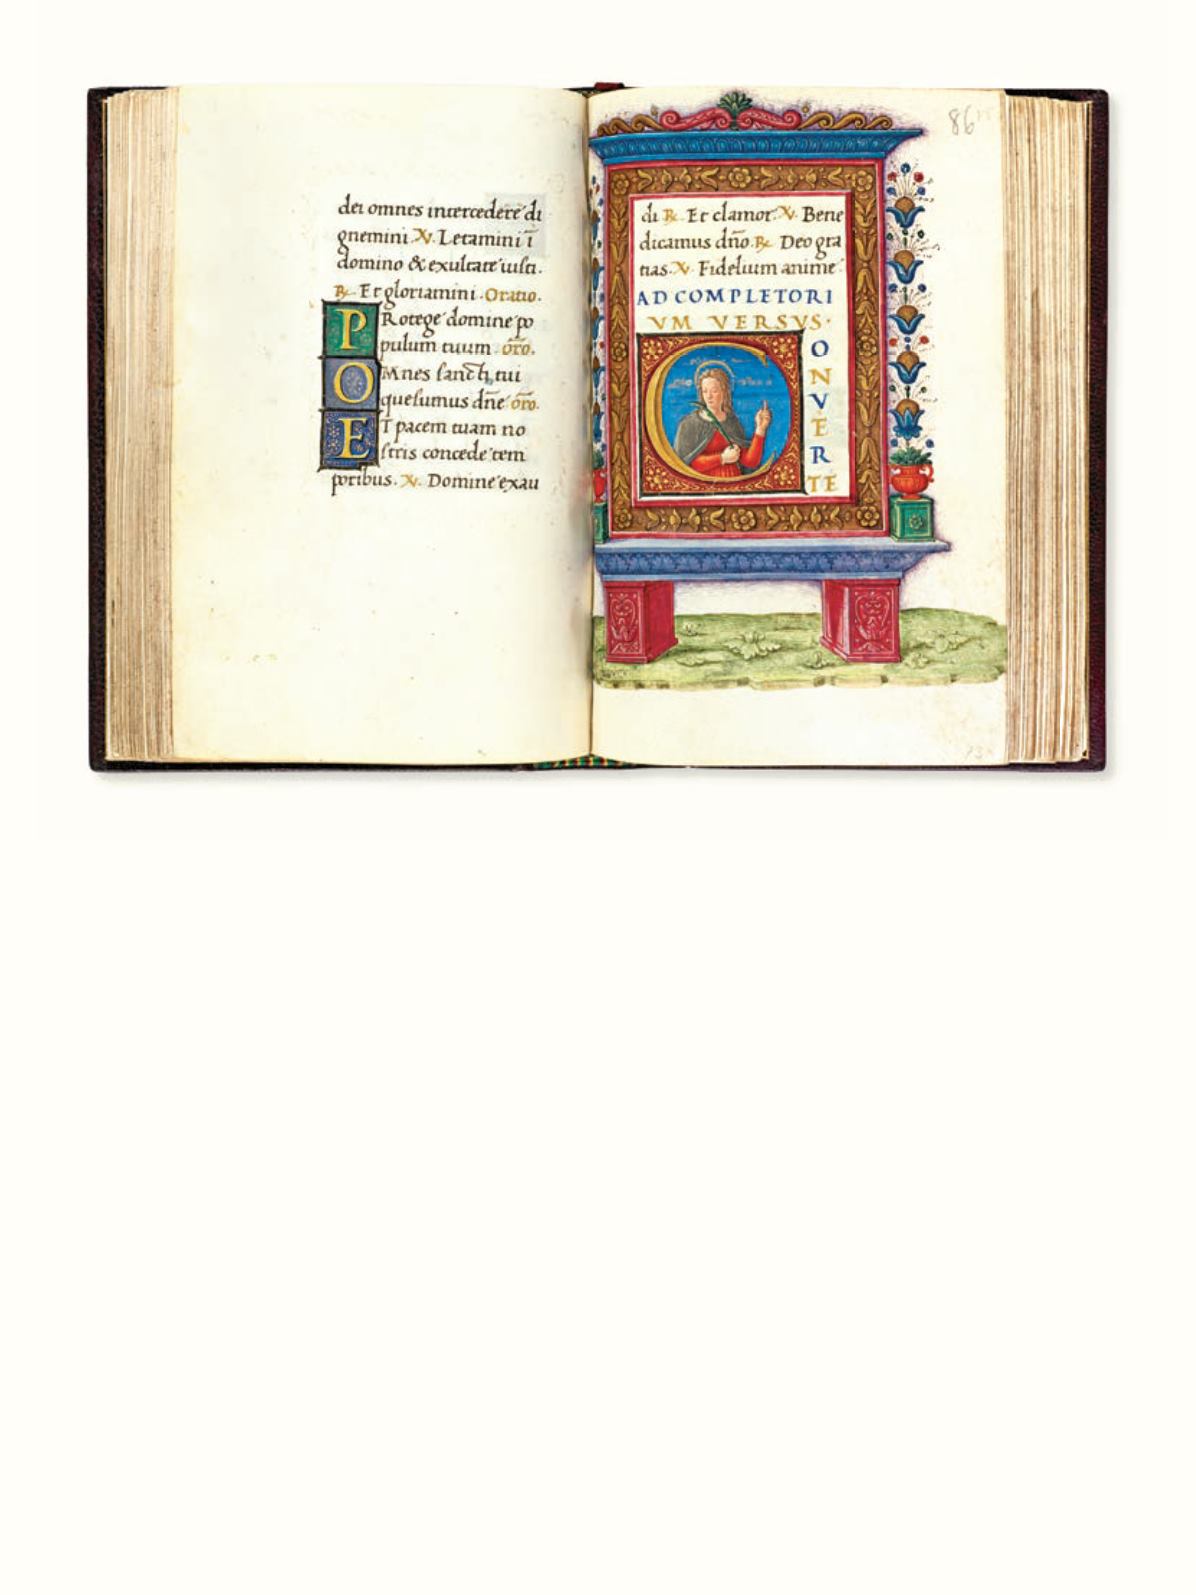 dei omnes intercedere di
gnemini. ℣. Letamini ī
domino & exultate iusti.
℟. Et gloriamini. Oratio.
PRotege domine po
pulum tuum. oro.
OMnes sancti tui
quesumus dn̄e. oro.
ET pacem tuam no
stris concede tem
poribus. ℣. Domine exau
86
di ℟. Et clamor. ℣. Bene
dicamus dn̄o. ℟. Deo gra
tias. ℣. Fidelium anime
AD COMPLETORI
VM VERSVS.
C
O
N
V
E
R
TE